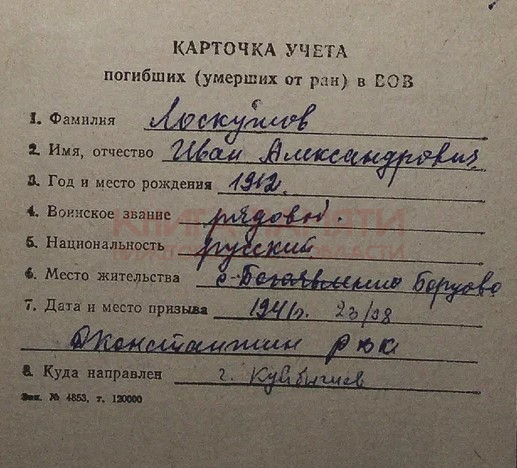 КАРТОЧКА УЧЕТА
погибших (умерших от ран) в ВОВ
1. Фамилия Лоскутов
2. Имя, отчество Иван Александрович
3. Год и место рождения 1912.
4. Воинское звание рядовой.
5. Национальность русский
КНИГА ПАМЯТИ
НИЖЕГОРОДСКОЙ ОБЛАСТИ
6. Место жительства с-Богоявление Борцово
7. Дата и место призыва 1941г. 23/08
Дконстантин рвк
8. Куда направлен г. Куйбышев
Зак. № 4853, т. 120000